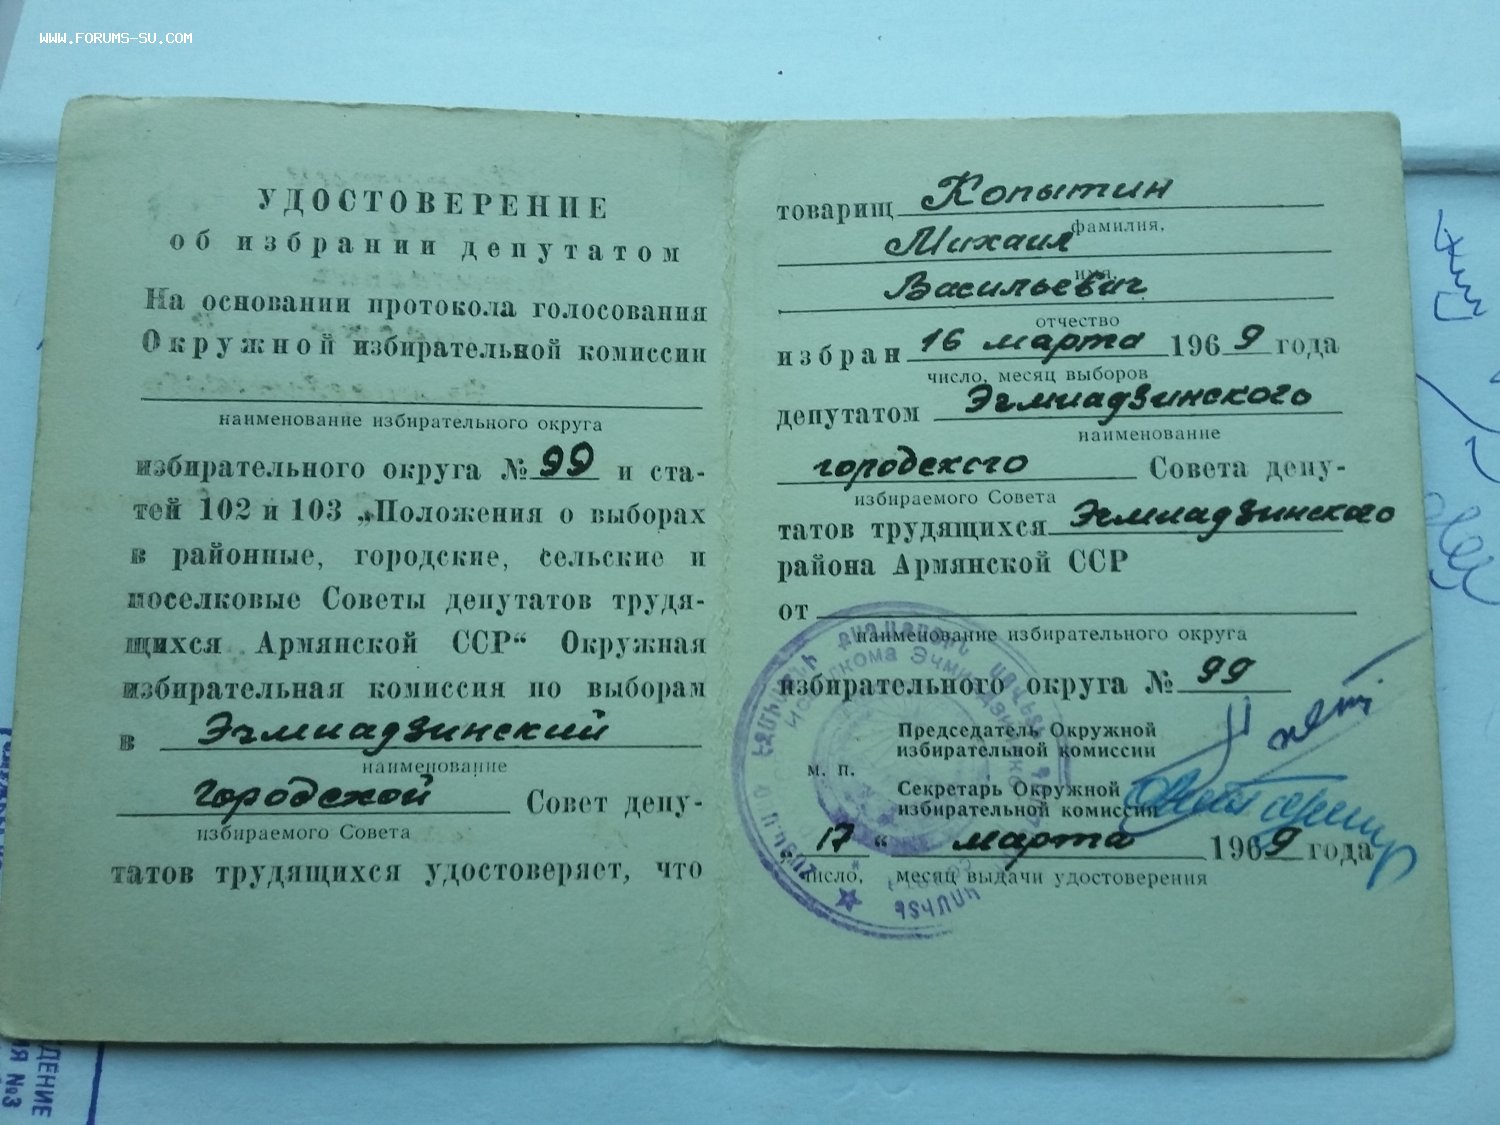 WWW.FORUMS-SU.COM
УДОСТОВЕРЕНИЕ
об избрании депутатом
На основании протокола голосования
Окружной избирательной комиссии
наименование избирательного округа
избирательного округа № 99 и ста-
тей 102 и 103 „Положения о выборах
в районные, городские, сельские и
поселковые Советы депутатов трудя-
щихся Армянской ССР“ Окружная
избирательная комиссия по выборам
в Эчмиадзинский
наименование
Городской Совет депу-
избираемого Совета
татов трудящихся удостоверяет, что
товарищ Копытин
фамилия,
Михаил
имя,
Васильевич
отчество
избран 16 марта 1969 года
число, месяц выборов
депутатом Эчмиадзинского
наименование
городского Совета депу-
избираемого Совета
татов трудящихся Эчмиадзинского
района Армянской ССР
от
наименование избирательного округа
избирательного округа № 99
Председатель Окружной
избирательной комиссии
м. п.
Секретарь Окружной
избирательной комиссии
„17“ марта 1969 года
число, месяц выдачи удостоверения
Исполкома Эчмиадзинского
ДЕНИЕ
ИЯ №3